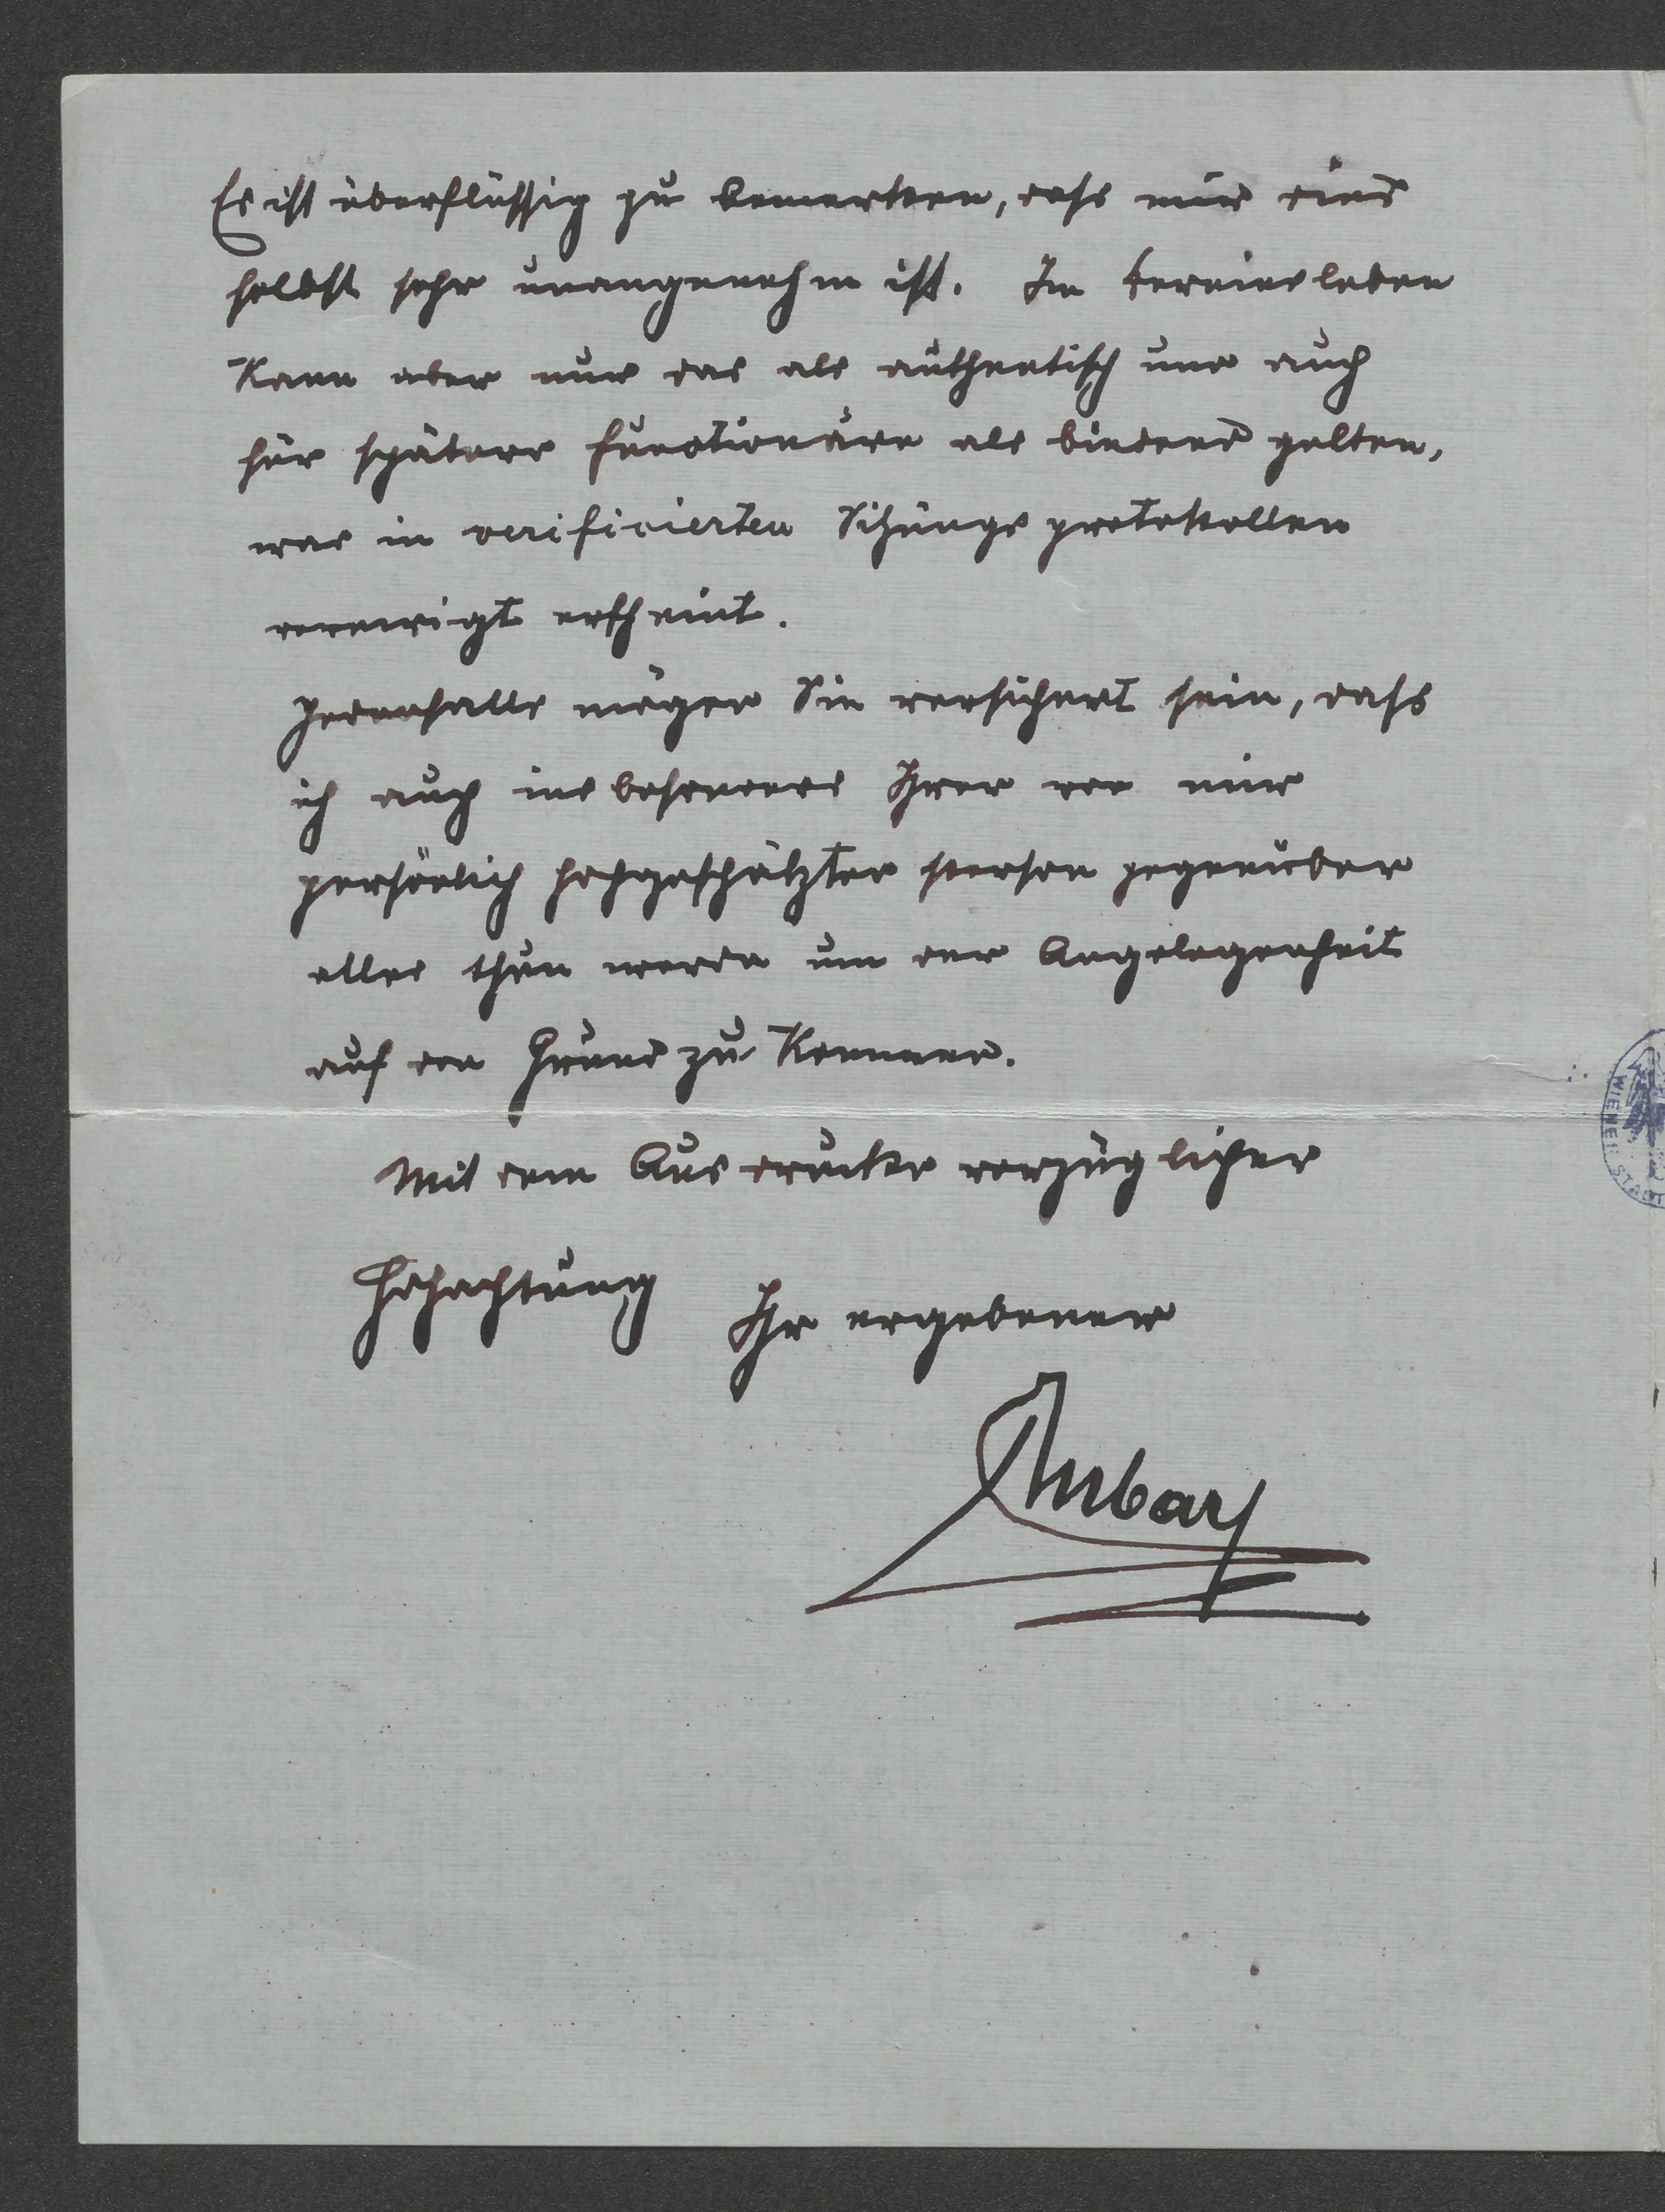 Es ist überflüssig zu bemerken, dass mir dies
selbst sehr unangenehm ist. Im Vereinsleben
kann aber nur das als authentisch und auch
für spätere Functionäre als bindend gelten,
was in verificierten Sitzungsprotokollen
verewigt erscheint.
Jedenfalls mögen Sie versichert sein, dass
ich auch insbesonders Ihrer von mir
persönlich hochgeschätzten Person gegenüber
alles thun werde um der Angelegenheit
auf den Grund zu kommen.
Mit dem Ausdrucke vorzüglicher
Hochachtung Ihr ergebener
WIENER STADT